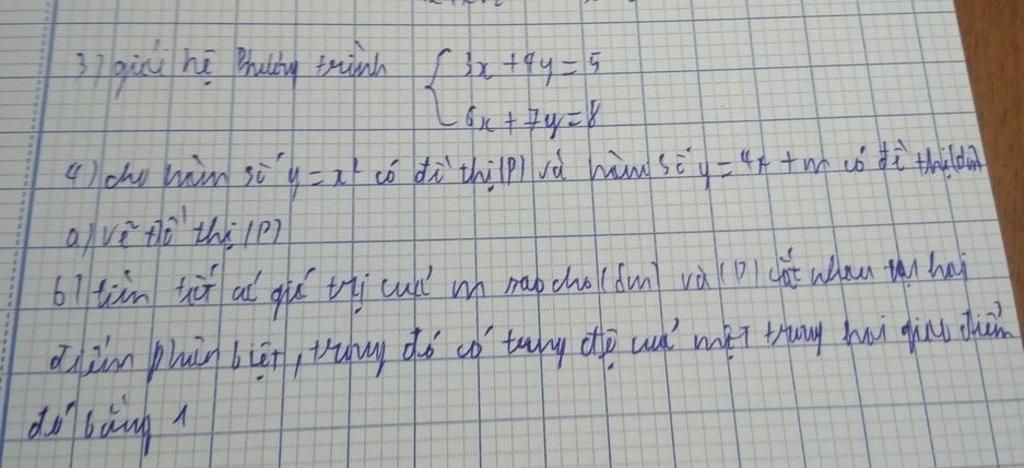 3) giải hệ phương trình { 3x + 4y = 5
6x + 7y = 8
4) cho hàm số y = x² có đồ thị (P) và hàm số y = 4x + m có đồ thị (dm)
a) vẽ đồ thị (P)
b) tìm tất cả giá trị của m sao cho (dm) và (P) cắt nhau tại hai
điểm phân biệt, trong đó có tung độ của một trong hai giao điểm
đó bằng 1